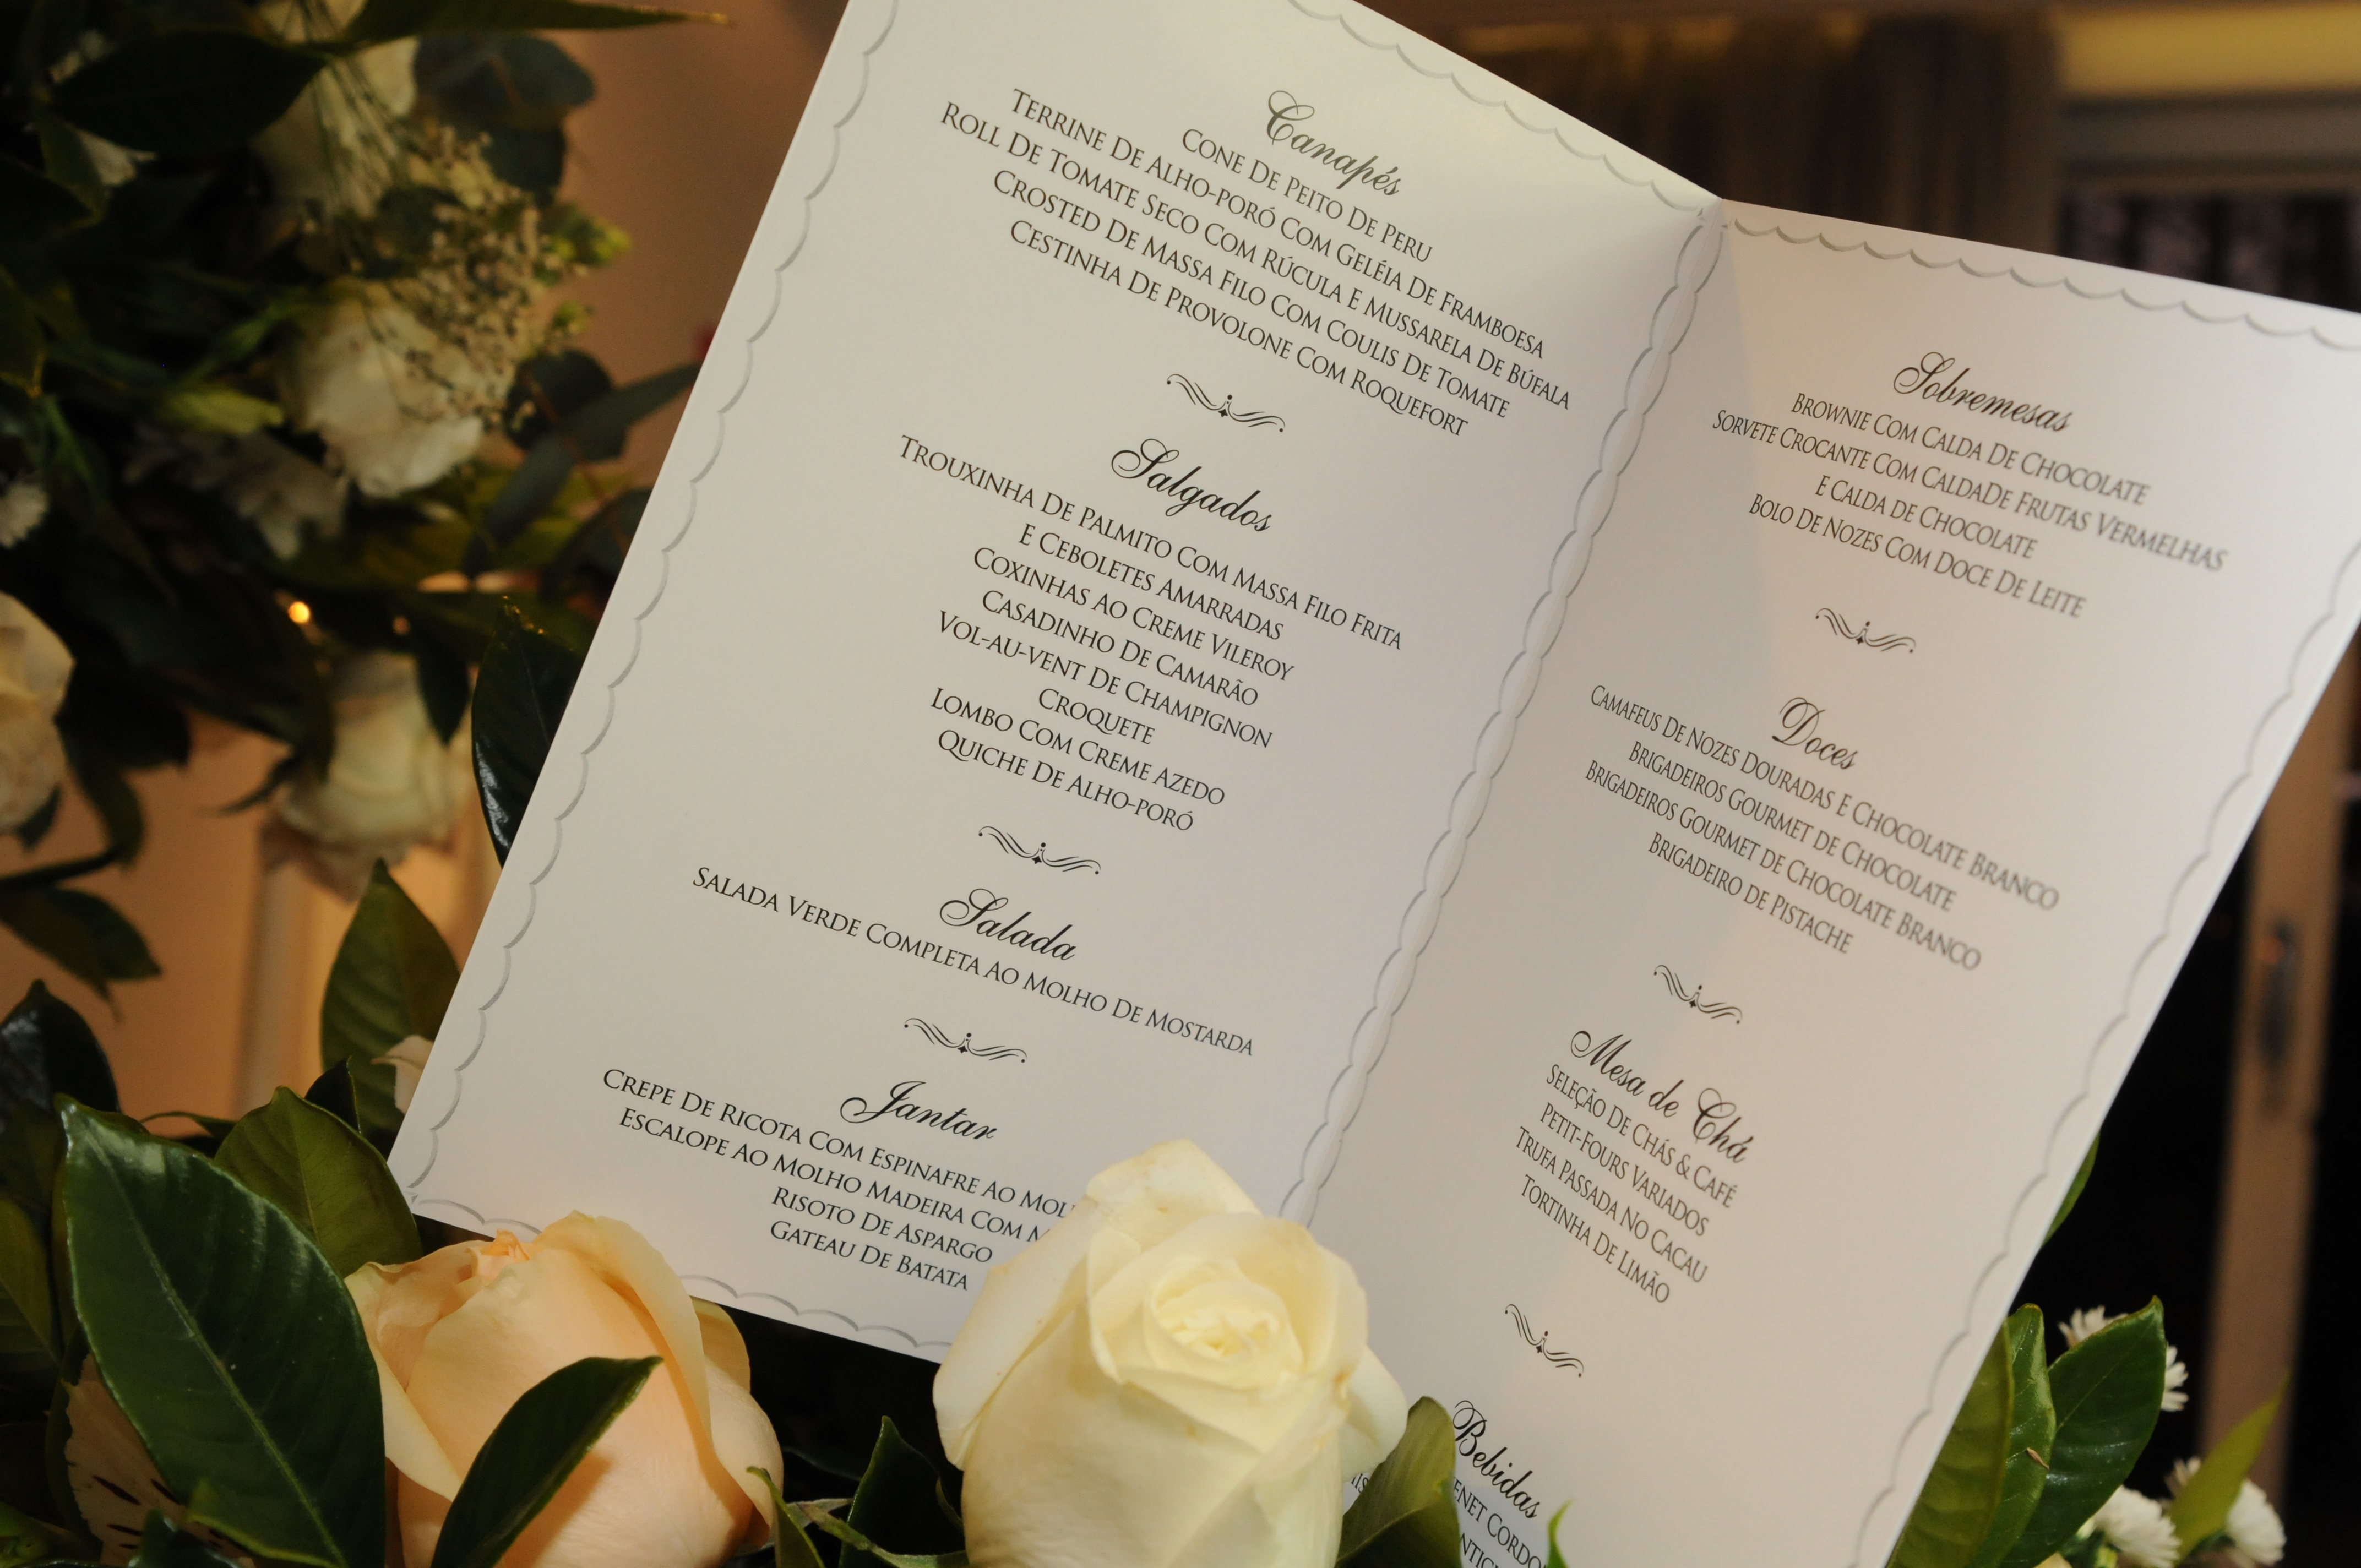 Canapés
Cone De Peito De Peru
Terrine De Alho-poró Com Geléia De Framboesa
Roll De Tomate Seco Com Rúcula E Mussarela De Búfala
Crosted De Massa Filo Com Coulis De Tomate
Cestinha De Provolone Com Roquefort
Salgados
Trouxinha De Palmito Com Massa Filo Frita
E Ceboletes Amarradas
Coxinhas Ao Creme Vileroy
Casadinho De Camarão
Vol-au-vent De Champignon
Croquete
Lombo Com Creme Azedo
Quiche De Alho-poró
Salada
Salada Verde Completa Ao Molho De Mostarda
Jantar
Crepe De Ricota Com Espinafre Ao
Escalope Ao Molho Madeira Com
Risoto De Aspargo
Gateau De Batata
Sobremesas
Brownie Com Calda De Chocolate
Sorvete Crocante Com CaldaDe Frutas Vermelhas
E Calda de Chocolate
Bolo De Nozes Com Doce De Leite
Doces
Camafeus De Nozes Douradas E Chocolate Branco
Brigadeiros Gourmet de Chocolate
Brigadeiros Gourmet de Chocolate Branco
Brigadeiro de Pistache
Mesa de Chá
Seleção De Chás & Café
Petit-Fours Variados
Trufa Passada No Cacau
Tortinha De Limão
Bebidas